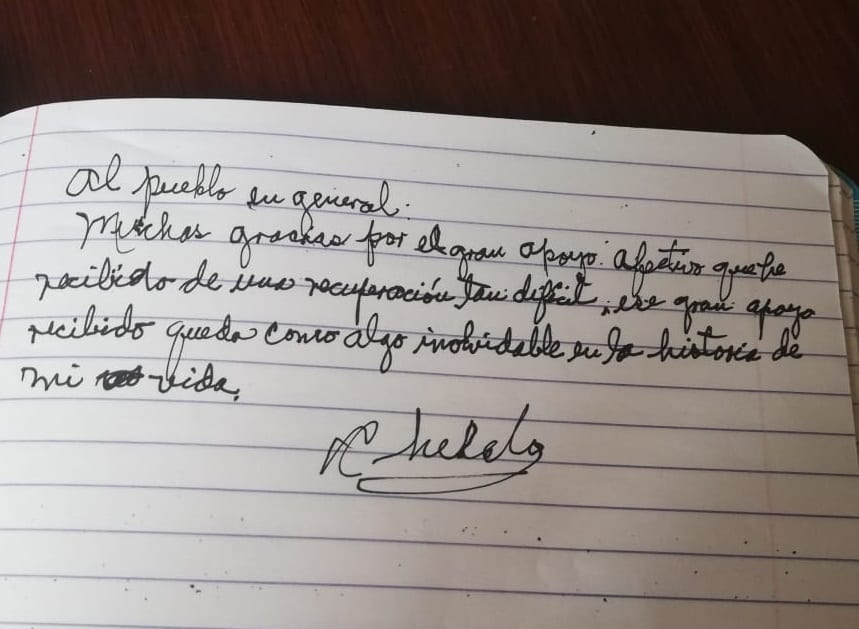 Al pueblo en general.
Muchas gracias por el gran apoyo afectivo que he
recibido de una recuperación tan difícil, ese gran apoyo
recibido queda como algo inolvidable en la historia de
mi vida.